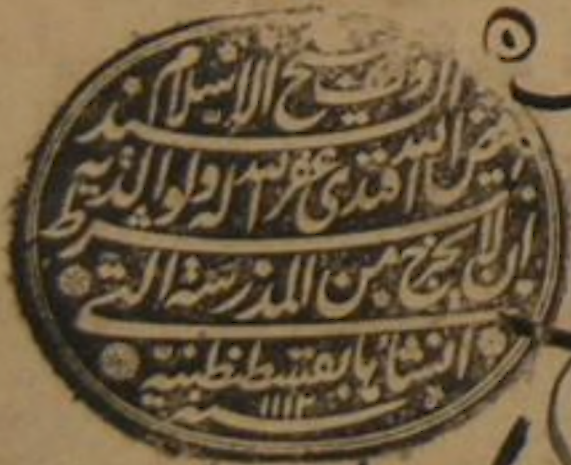 ٥
وقف شيخ الاسلام السيد
فيض الله افندى غفر الله له ولوالديه بشرط
ان لا يخرج من المدرسة التى
انشأها بقسطنطنية
سنة ١١١٢